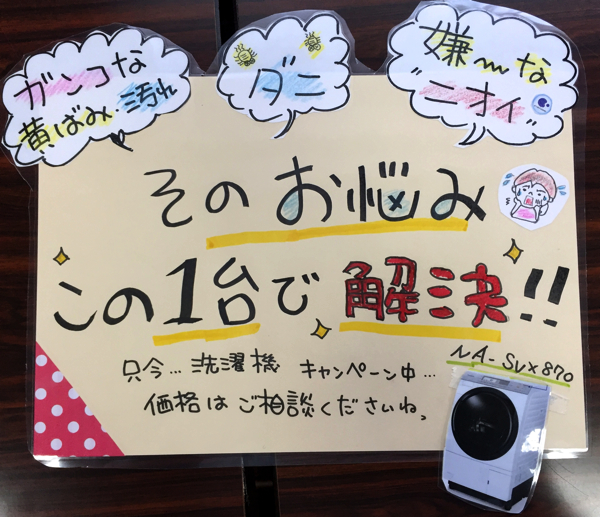 ガンコな
黄ばみ汚れ
ダニ
嫌〜な
"ニオイ"
そのお悩み
この1台で解決!!
只今…洗濯機 キャンペーン中…
価格はご相談くださいね。
NA-SVX870